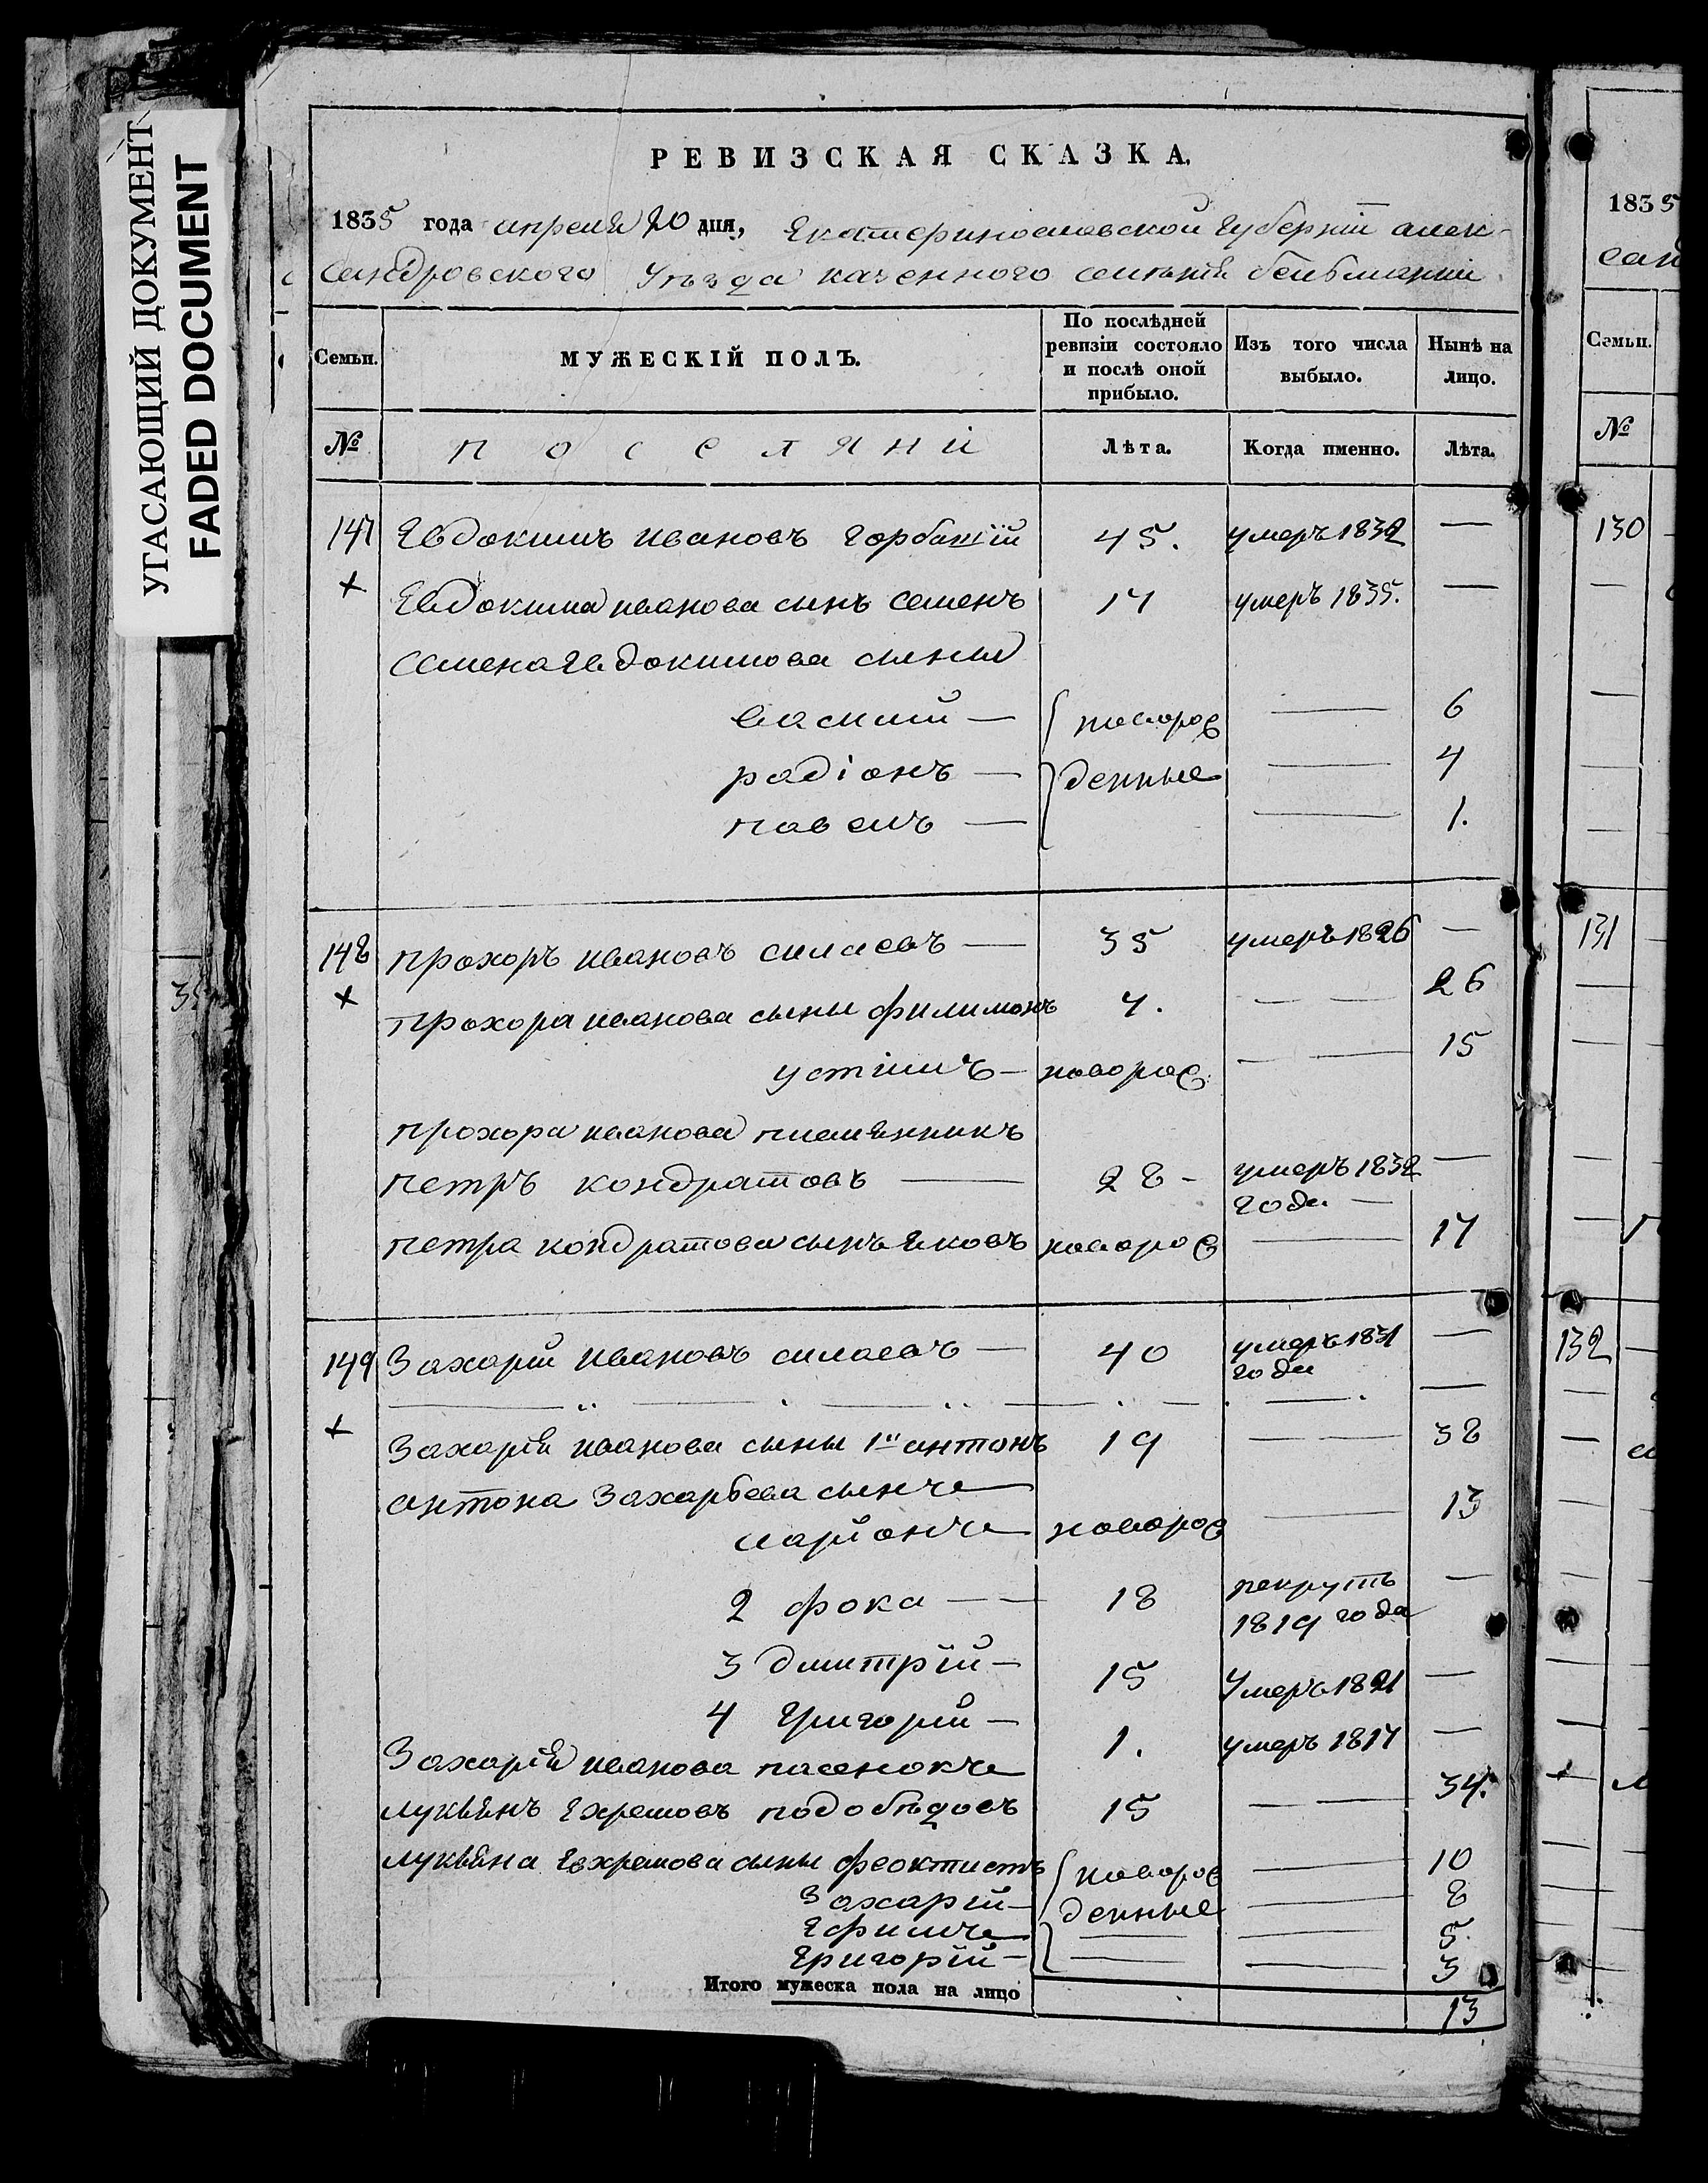 УГАСАЮЩИЙ ДОКУМЕНТ
FADED DOCUMENT
РЕВИЗСКАЯ СКАЗКА.
1835 года апреля 20 дня, Екатеринославской губернiи алек-
сандровского уѣзда казенного селѣнiя бельманки
Семьи.
МУЖЕСКІЙ ПОЛЪ.
По послѣдней ревизіи состояло и послѣ оной прибыло.
Изъ того числа выбыло.
Нынѣ на лицо.
№ поселяни Лѣта. Когда именно. Лѣта.
147 Евдокимъ Ивановъ 45. умеръ 1832 —
+ Евдокима иванова сынъ семенъ 17 умеръ 1835. —
семена Евдокимова сыны
василий — новорож — 6
радiонъ — денные — 4
павелъ — — 1.
148 прохоръ ивановъ силаевъ — 35 умеръ 1826 —
+ прохора иванова сыны филимонъ 7. — — 26
устимъ — новорож. — — 15
прохора иванова племянникъ
петръ кондратовъ — 28 - умеръ 1832 —
года —
петра кондратова сынъ яковъ новорож — 17
149 Захарiй ивановъ силаевъ — 40 умеръ 1831 —
года
+ Захарiя иванова сыны 1й антонъ 19 — — 38
антона Захарьева сынъ
ларiонъ новорож — 13
2 фока — — 18 рекрутъ —
1819 года
3 дмитрiй — 15 Умеръ 1821 —
4 Григорiй — 1. умеръ 1817 —
Захарiя иванова пасенокъ
лукьянъ Ехремовъ подобѣдовъ 15 — — 34.
лукьяна Евхремова сыны феоктистъ новорож — 10
Захарiй — денные — 8
Ефимъ — — 5.
Григорiй — — — 3
Итого мужеска пола на лицо 13
1835
сан
Семьи.
№
130
131
132